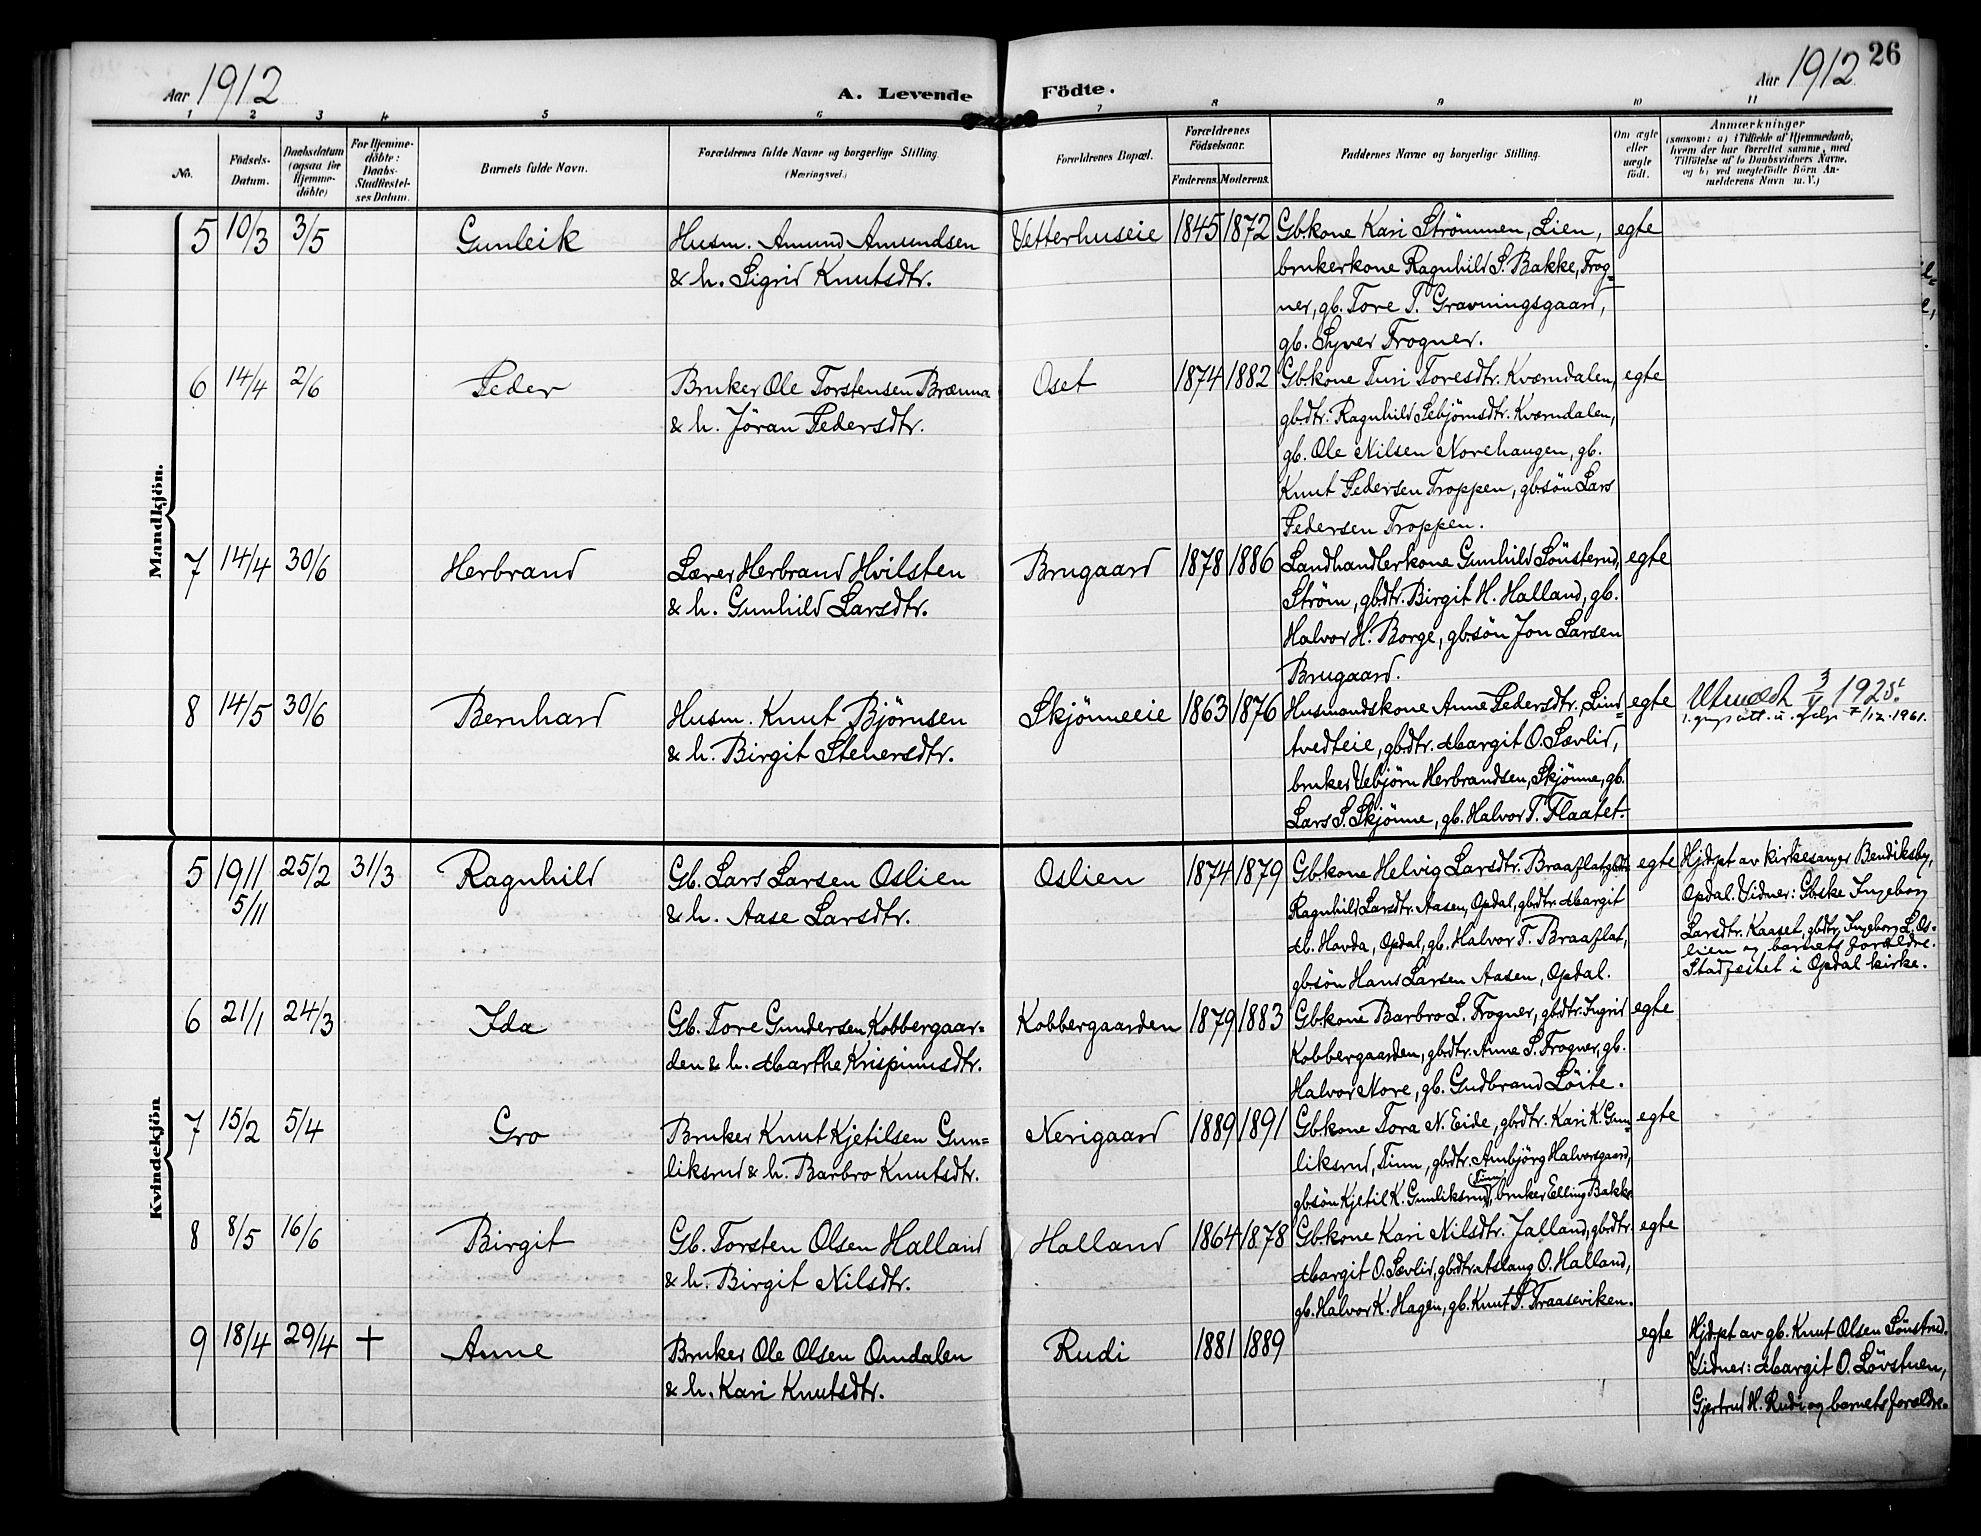 Aar 1912
A. Levende Födte.
Aar 1912
26
1 2 3 4 5 6 7 8 9 10 11
No.
Födsels-Datum.
Daabsdatum (ogsaa for Hjemme-döbte)
For Hjemme-döbte: Daabs-Stadfæstel-ses Datum.
Barnets fulde Navn.
Forældrenes fulde Navne og borgerlige Stilling. (Næringsvei.)
Forældrenes Bopæl.
Forældrenes Födselsaar.
Faderens. Moderens.
Faddernes Navne og borgerlige Stilling.
Om ægte eller uægte födt.
Anmærkninger
(saasom: a) i Tilfælde af Hjemmedaab,
hvem der har forrettet samme, med
Tilföielse af to Daabsvidners Navne,
og b) ved uægtefödte Börn An-
melderens Navn m. V.)
Mandkjön.
5 10/3 3/5 Gunleik Husm. Amund Amundsen Vetterhuseie 1845 1872 Gbkone Kari Strömmen, Lien, egte
& h. Sigrid Knutsdtr. brukerkone Ragnhild S. Bakke, Frog=
ner, gb. Tore T. Gravningsgaard,
gb. Syver Frogner.
6 14/4 2/6 Peder Bruker Ole Torstensen Brænna Oset 1874 1882 Gbkone Turi Toresdtr. Kværndalen, egte
& h. Jöran Pedersdtr. gbdtr. Ragnhild Sebjörnsdtr. Kværndalen,
gb. Ole Nilsen Norehaugen, gb.
Knut Pedersen Troppen, gbsön Lars
Pedersen Troppen.
7 14/4 30/6 Herbrand Lærer Herbrand Hvilsten Brugaard 1878 1886 Landhandlerkone Gunhild Sönsterud, egte
& h. Gunhild Larsdtr. Ström, gbdtr. Birgit H. Halland, gb.
Halvor H. Borge, gbsön Jon Larsen
Brugaard.
8 14/5 30/6 Bernhard Husm. Knut Björnsen Skjönneeie 1863 1876 Husmandskone Anne Pedersdtr, Lind= egte Utmeldt 3/4 1925.
& h. Birgit Stenersdtr. tvedteie, gbdtr. Margit O. Sævlid, 1961.
bruker Vebjörn Herbrandsen, Skjönne, gb.
Lars S. Skjönne, gb. Halvor T. Flaatet.
Kvindekjön
5 1911 5/11 25/2 31/3 Ragnhild Gb. Lars Larsen Oslien Oslien 1874 1879 Gbkone Helvig Larsdtr. Braaflat, gbdtr. egte Hjdpt av kirkesanger Bendiksby,
& h. Aase Larsdtr. Ragnhild Larsdtr. Aasen, Opdal, gbdtr. Margit Opdal. Vidner: Gbske Ingeborg
M. Hovda, Opdal, gb. Halvor T. Braaflat, Larsdtr. Kaaset, gbdtr. Ingeborg L. Os-
gbsön Hans Larsen Aasen, Opdal. lien og barnets forældre.
Stadfæstet i Opdal kirke.
6 21/1 24/3 Ida Gb. Tore Gundersen Kobbergaar= Kobbergaarden 1879 1883 Gbkone Barbro L. Frogner, gbdtr. Ingrid egte
den & h. Marthe Krispinusdtr. Kobbergaarden, gbdtr. Anne S. Frogner, gb.
Halvor Nore, gb. Gudbrand Löite.
7 15/2 5/4 Gro Bruker Knut Kjetilsen Gun= Nerigaard 1889 1891 Gbkone Tora N. Eide, gbdtr. Kari K. Gun= egte
liksrud & h. Barbro Knutsdtr. liksrud, Tinn, gbdtr. Ambjörg Halvorsgaard,
gbsön Kjetil K. Gunliksrud, Tinn, bruker Elling Bakke.
8 8/5 16/6 Birgit Gb. Torsten Olsen Halland Halland 1864 1878 Gbkone Kari Nilsdtr. Jalland, gbdtr. egte
& h. Birgit Nilsdtr. Margit O. Sævlid, gbdtr. Aslaug O. Halland,
gb. Halvor K. Hagen, gb. Knut P. Traaseviken.
9 18/4 29/4 + Anne Bruker Ole Olsen Omdalen Rudi 1881 1889 egte Hjdpt av gb. Knut Olsen Sönstrud.
& h. Kari Knutsdtr. Vidner: Margit O. Lövstuen,
Gjertrud H. Rudi og barnets forældre.